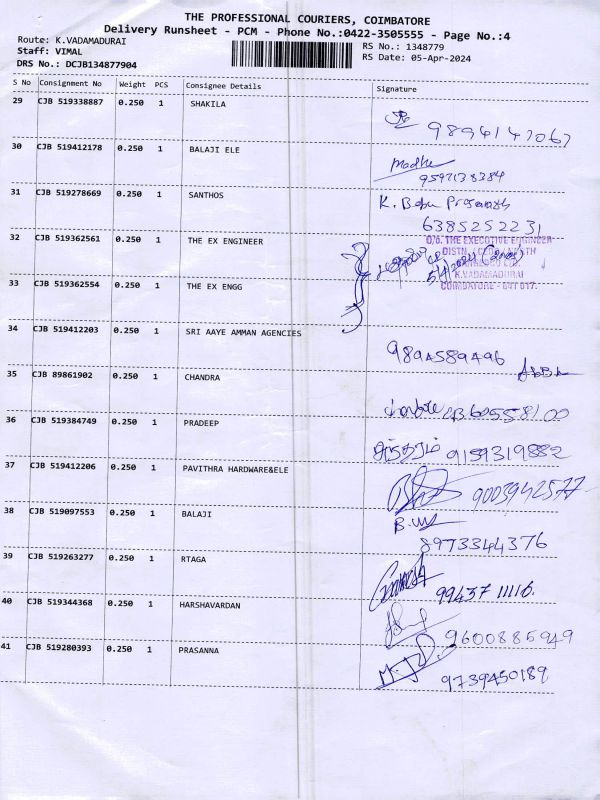 THE PROFESSIONAL COURIERS, COIMBATORE
Delivery Runsheet - PCM - Phone No.:0422-3505555 - Page No.:4
Route: K.VADAMADURAI
Staff: VIMAL
DRS No.: DCJB134877904
RS No.: 1348779
RS Date: 05-Apr-2024
S No Consignment No Weight PCS Consignee Details Signature
29 CJB 519338887 0.250 1 SHAKILA
30 CJB 519412178 0.250 1 BALAJI ELE
Madhu
9597138384
31 CJB 519278669 0.250 1 SANTHOS
K. Babu Prasanth
6385252231
32 CJB 519362561 0.250 1 THE EX ENGINEER
O/o. THE EXECUTIVE ENGINEER
K.VADAMADURAI
COIMBATORE - 641 017.
33 CJB 519362554 0.250 1 THE EX ENGG
34 CJB 519412203 0.250 1 SRI AAYE AMMAN AGENCIES
9894589496
35 CJB 89861902 0.250 1 CHANDRA
36 CJB 519384749 0.250 1 PRADEEP
9159319882
37 CJB 519412206 0.250 1 PAVITHRA HARDWARE&ELE
9003942577
38 CJB 519097553 0.250 1 BALAJI
8973344376
39 CJB 519263277 0.250 1 RTAGA
99437 11116.
40 CJB 519344368 0.250 1 HARSHAVARDAN
9600885949
41 CJB 519280393 0.250 1 PRASANNA
9739450189